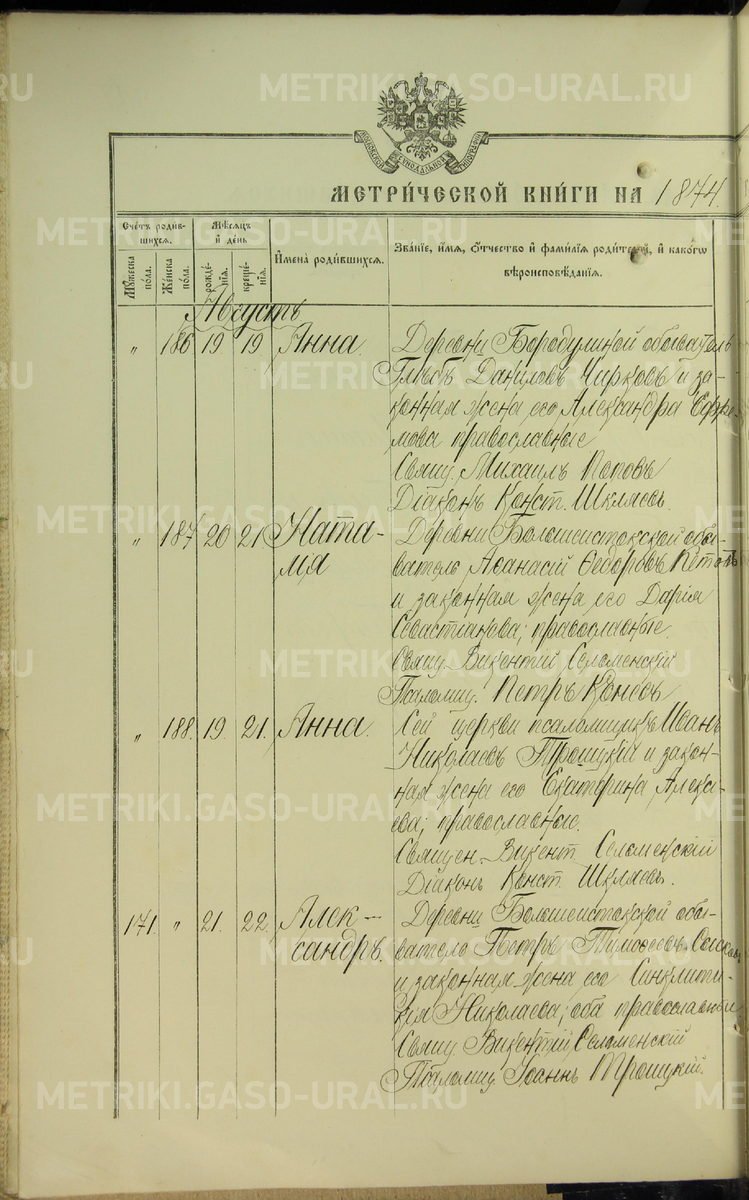 METRIKI.GASO-URAL.RU
МОСКОВСКОЙ СѴНОДАЛЬНОЙ ТИПОГРАФІИ
МЕТРИ́ЧЕСКОЙ КНИ́ГИ НА 1874.
Сче́тъ роди́вшихся.
Мѣ́сяцъ и҆ де́нь
И҆мена̀ роди́вшихся.
Зва́нїе, и҆́мѧ, ѻ҆́тчество и҆ фами́лїѧ роди́телей, и҆ како́гѡ вѣроисповѣ́данїѧ.
Мꙋ́жеска по́ла.
Же́нска по́ла.
рожде́нїѧ.
креще́нїѧ.
Августъ
„ 186 19 19 Анна. Деревни Бородулиной обыватель
Глѣбъ Даниловъ Чирковъ и за-
конная жена его Александра Ефре-
мова православные
Свящ. Михаилъ Поповъ
Діаконъ Конст. Шкляевъ.
„ 187 20 21 Ната- Деревни Большеистокской обы-
лія ватель Аѳанасій Ѳедоровъ Кетовъ
и законная жена его Дарія
Севастіанова; православные.
Свящ. Викентій Селоменскій
Псаломщ. Петръ Коневъ
„ 188. 19. 21. Анна. Сей церкви псаломщикъ Иванъ
Николаевъ Троицкій и закон-
ная жена его Екатерина Алексѣ-
ева; православные.
Священ. Викент. Селоменскій
Діаконъ Конст. Шкляевъ.
171. „ 21. 22. Алек- Деревни Большеистокской обы-
сандръ. ватель Петръ Тимоѳеевъ
и законная жена его Синклити-
кія Николаева; оба православные
Свящ. Викентій Селоменскій
Псаломщ. Іоаннъ Троицкій.